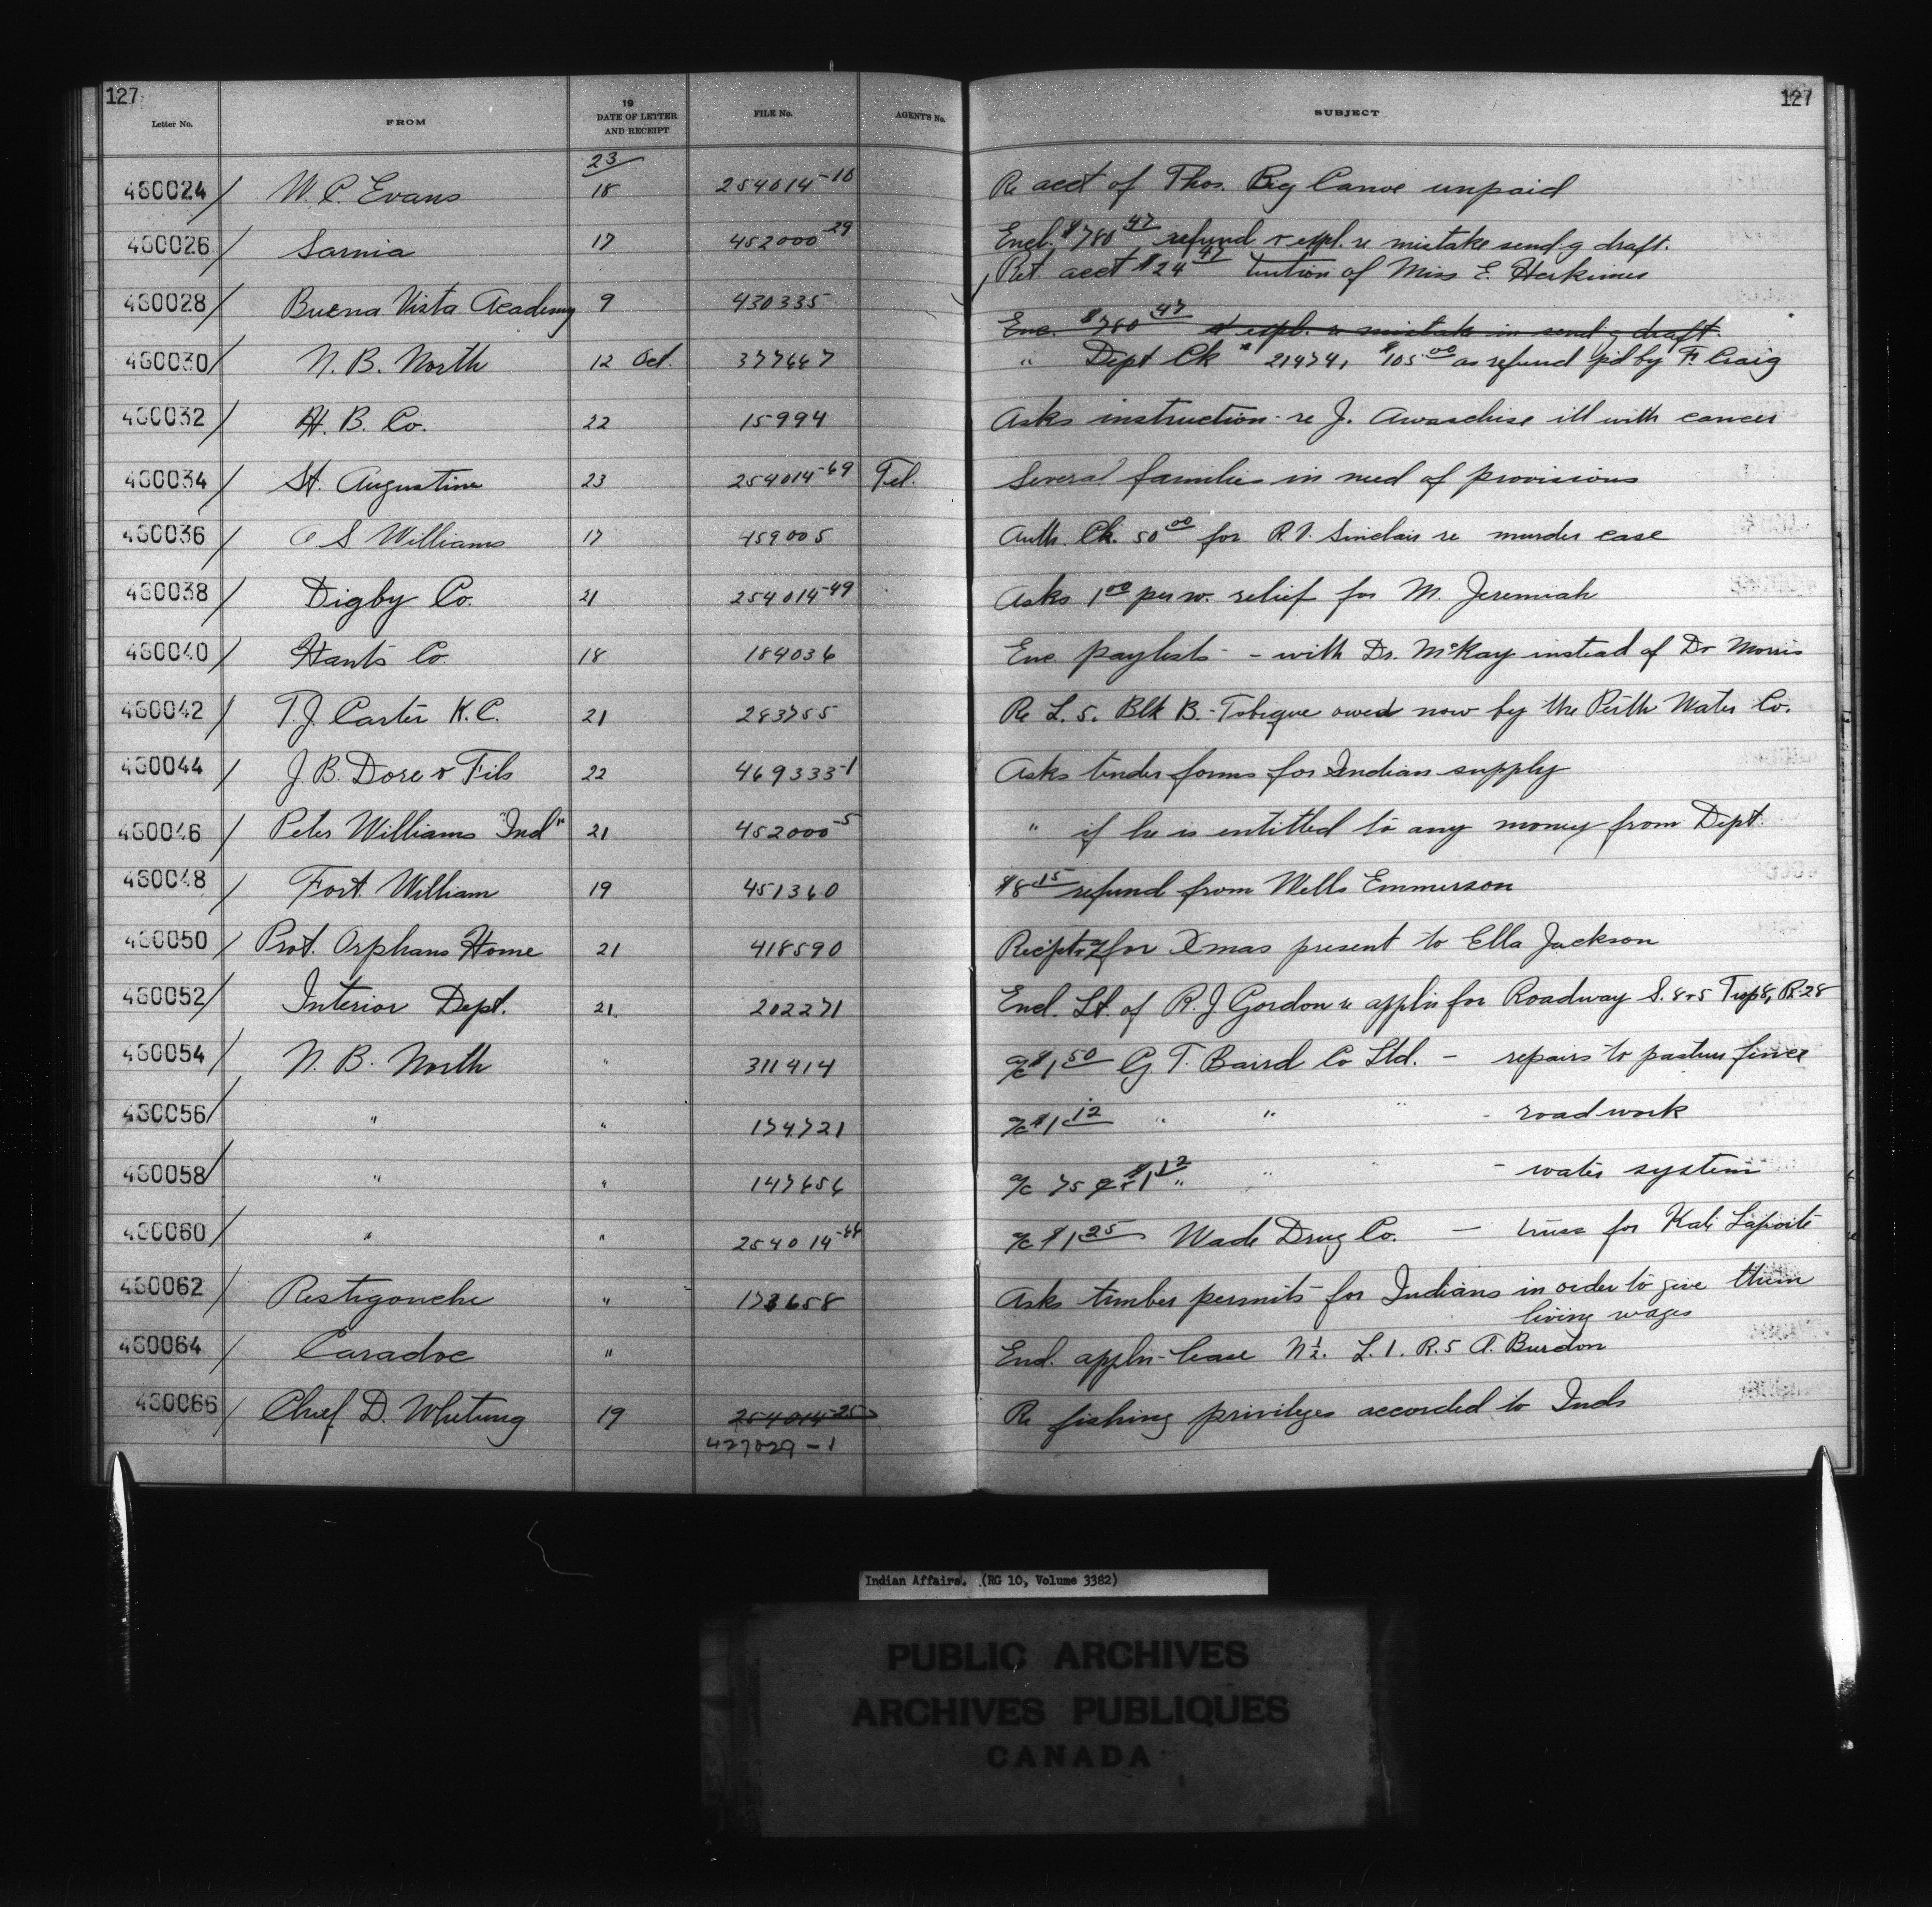 127 127
Letter No. FROM 19 DATE OF LETTER AND RECEIPT FILE No. AGENT'S No. SUBJECT
23
460024 / W. C. Evans 18 254014-10 Re acct of Thos. Big Canoe unpaid
460026 / Sarnia 17 452000-29 Encl. $780 47 refund & expl. re mistake send.g draft.
Ret. acct $24 47 tuition of Miss E. Herkimer
460028 / Buena Vista Academy 9 430335
Enc. $780 47 & expl. re mistake in send.g draft.
460030 / N. B. North 12 Oct. 377647 " Dept Ck # 21474, $105.00 as refund p'd by F. Craig
460032 / H. B. Co. 22 15994 Asks instruction re J. Awaschise ill with cancer
460034 / St. Augustine 23 254014-69 Tel. Several families in need of provisions
460036 / A S Williams 17 459005 Auth. Ck. 50 00 for R. V. Sinclair re murder case
460038 / Digby Co. 21 254014-49 Asks 1 00 per w. relief for M. Jeremiah
460040 / Hants Co. 18 184036 Enc. paylists - with Dr. McKay instead of Dr Morris
460042 / T. J. Carter K. C. 21 283755 Re L. 5. Blk B. - Tobique owed now by the Perth Water Co.
460044 / J. B. Dore & Fils 22 469333-1 Asks tender forms for Indian supply
460046 / Peter Williams "Ind" 21 452000-5 " if he is entitled to any money from Dept.
460048 / Fort William 19 451360 $8 15 refund from Wells Emmerson
460050 / Prot. Orphans Home 21 418590 for Xmas present to Ella Jackson
460052 / Interior Dept. 21. 202271 Encl. Lt. of R. J Gordon re appl'n for Roadway S. 8+5 Twp 8, R. 28
460054 / N. B. North " 311414 a/c $1 50 G. T. Baird Co Ltd. - repairs to pasture fence
460056 / " " 174721 a/c $1 12 " " " - road work
460058 / " " 147656 a/c 75 ¢ & $1 12 " " " - water system
460060 / " " 254014-44 a/c $1 25 Wade Drug Co. - truss for Kate Laporte
460062 / Restigouche " 173658 Asks timber permits for Indians in order to give them
living wages
460064 / Caradoc " Encl. appl'n lease N 1/2. L. 1. R. 5 A. Burdon
460066 / Chief D. Whetung 19 254014-25 Re fishing privileges accorded to Inds
427029-1
Indian Affairs. (RG 10, Volume 3382)
PUBLIC ARCHIVES
ARCHIVES PUBLIQUES
CANADA